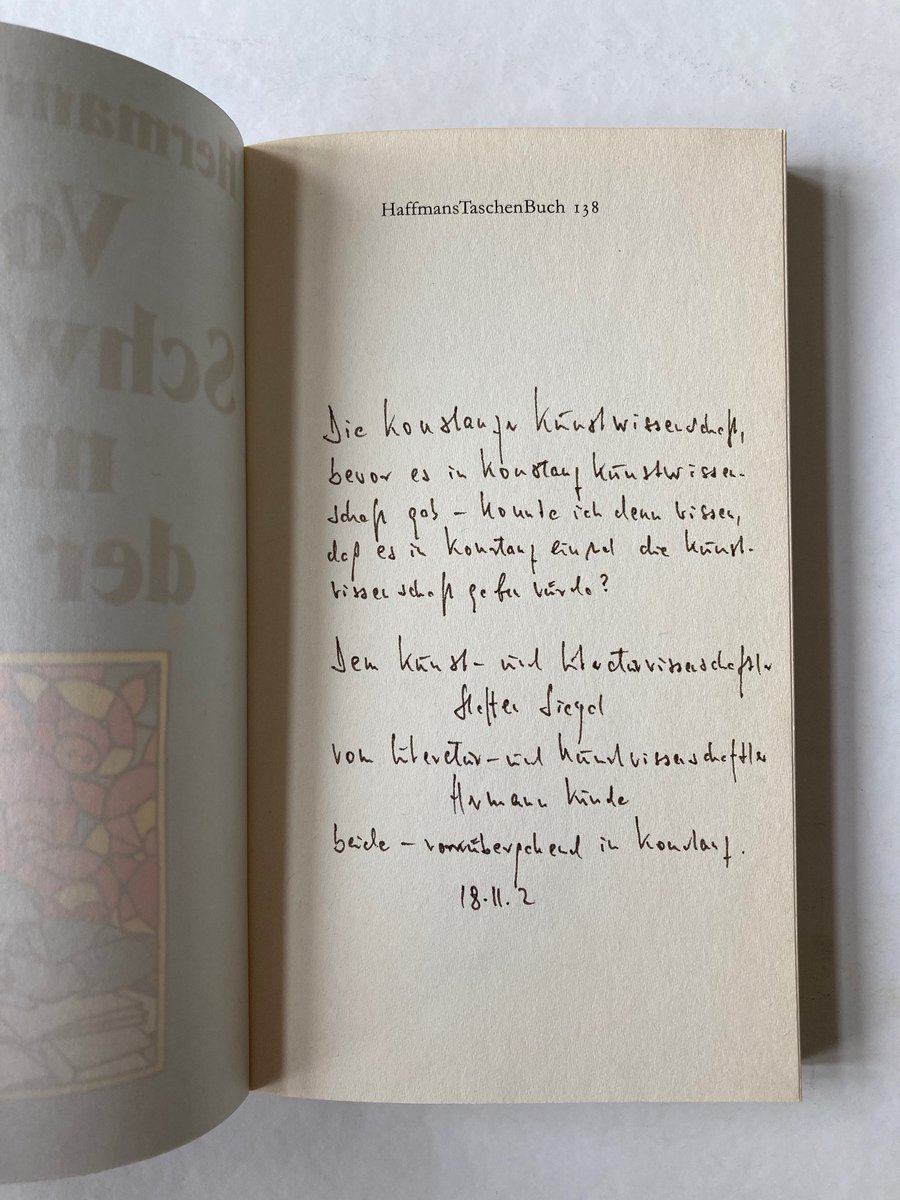 HaffmansTaschenBuch 138
Die Konstanzer Kunstwissenschaft,
bevor es in Konstanz Kunstwissen-
schaft gab – konnte ich denn wissen,
daß es in Konstanz einmal die Kunst-
wissenschaft geben würde?
Dem Kunst- und Literaturwissenschaftler
Steffen Siegel
vom Literatur- und Kunstwissenschaftler
Hermann Kinder
beide – vorübergehend in Konstanz.
18.11.2
Hermann
Vo
Schw
m
der